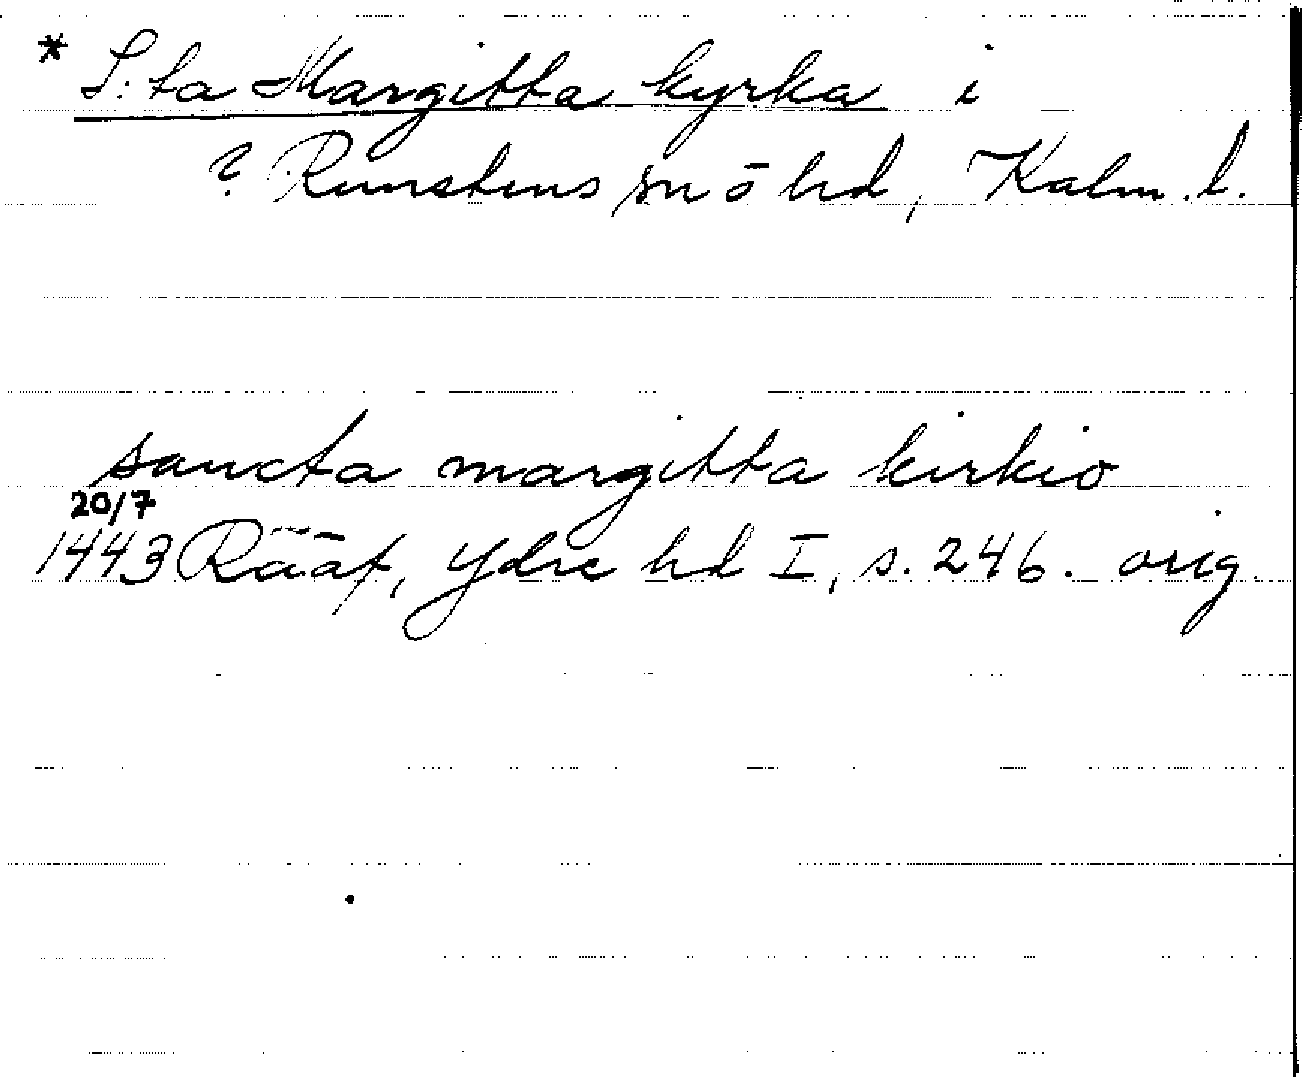 * S:ta Margitta kyrka i
? Runstens sn o hd, Kalm. l.
sancta margitta kirkio
20/7
1443 Rääf, Ydre hd I, s. 246. orig.